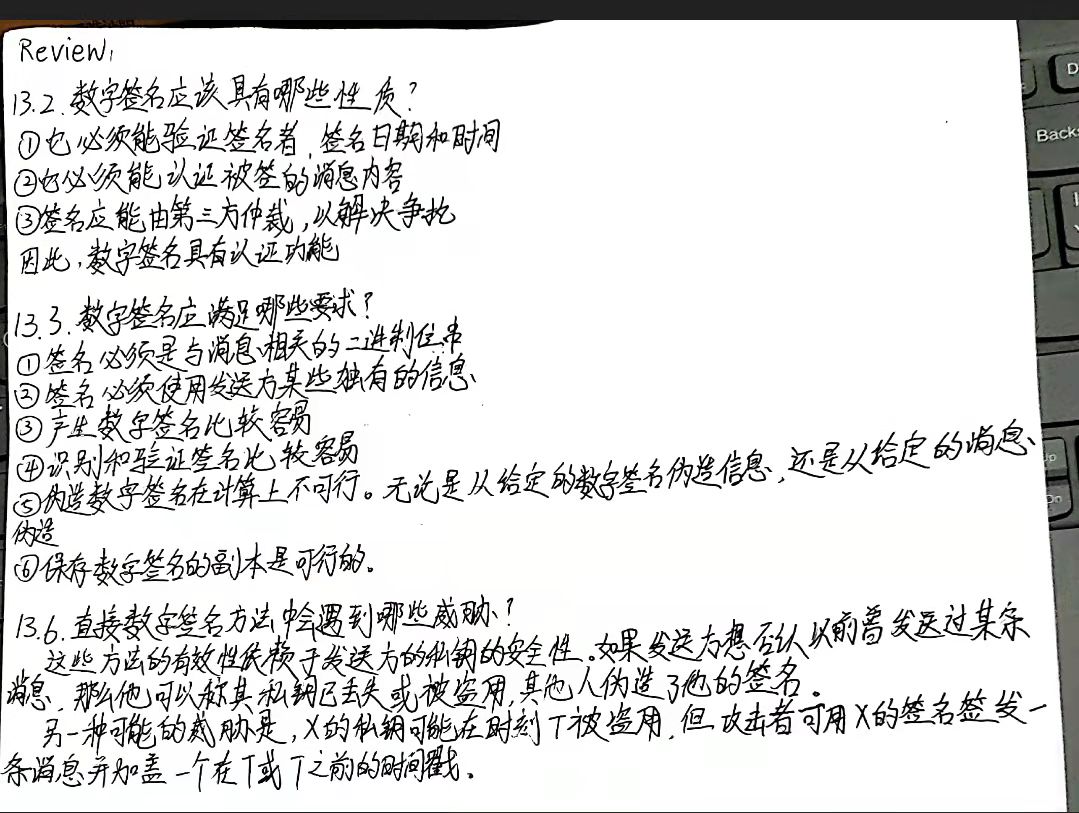 Review:
13.2.数字签名应该具有哪些性质？
①它必须能验证签名者、签名日期和时间
②它必须能认证被签的消息内容
③签名应能由第三方仲裁，以解决争执
因此，数字签名具有认证功能
13.3.数字签名应满足哪些要求？
①签名必须是与消息相关的二进制位串
②签名必须使用发送方某些独有的信息
③产生数字签名比较容易
④识别和验证签名比较容易
⑤伪造数字签名在计算上不可行。无论是从给定的数字签名伪造信息，还是从给定的消息
伪造
⑥保存数字签名的副本是可行的。
13.6.直接数字签名方法中会遇到哪些威胁？
这些方法的有效性依赖于发送方的私钥的安全性。如果发送方想否认以前曾发送过某条
消息，那么他可以称其私钥已丢失或被盗用，其他人伪造了他的签名。
另一种可能的威胁是，X的私钥可能在时刻T被盗用，但攻击者可用X的签名签发一
条消息并加盖一个在T或T之前的时间戳。
Backs
D